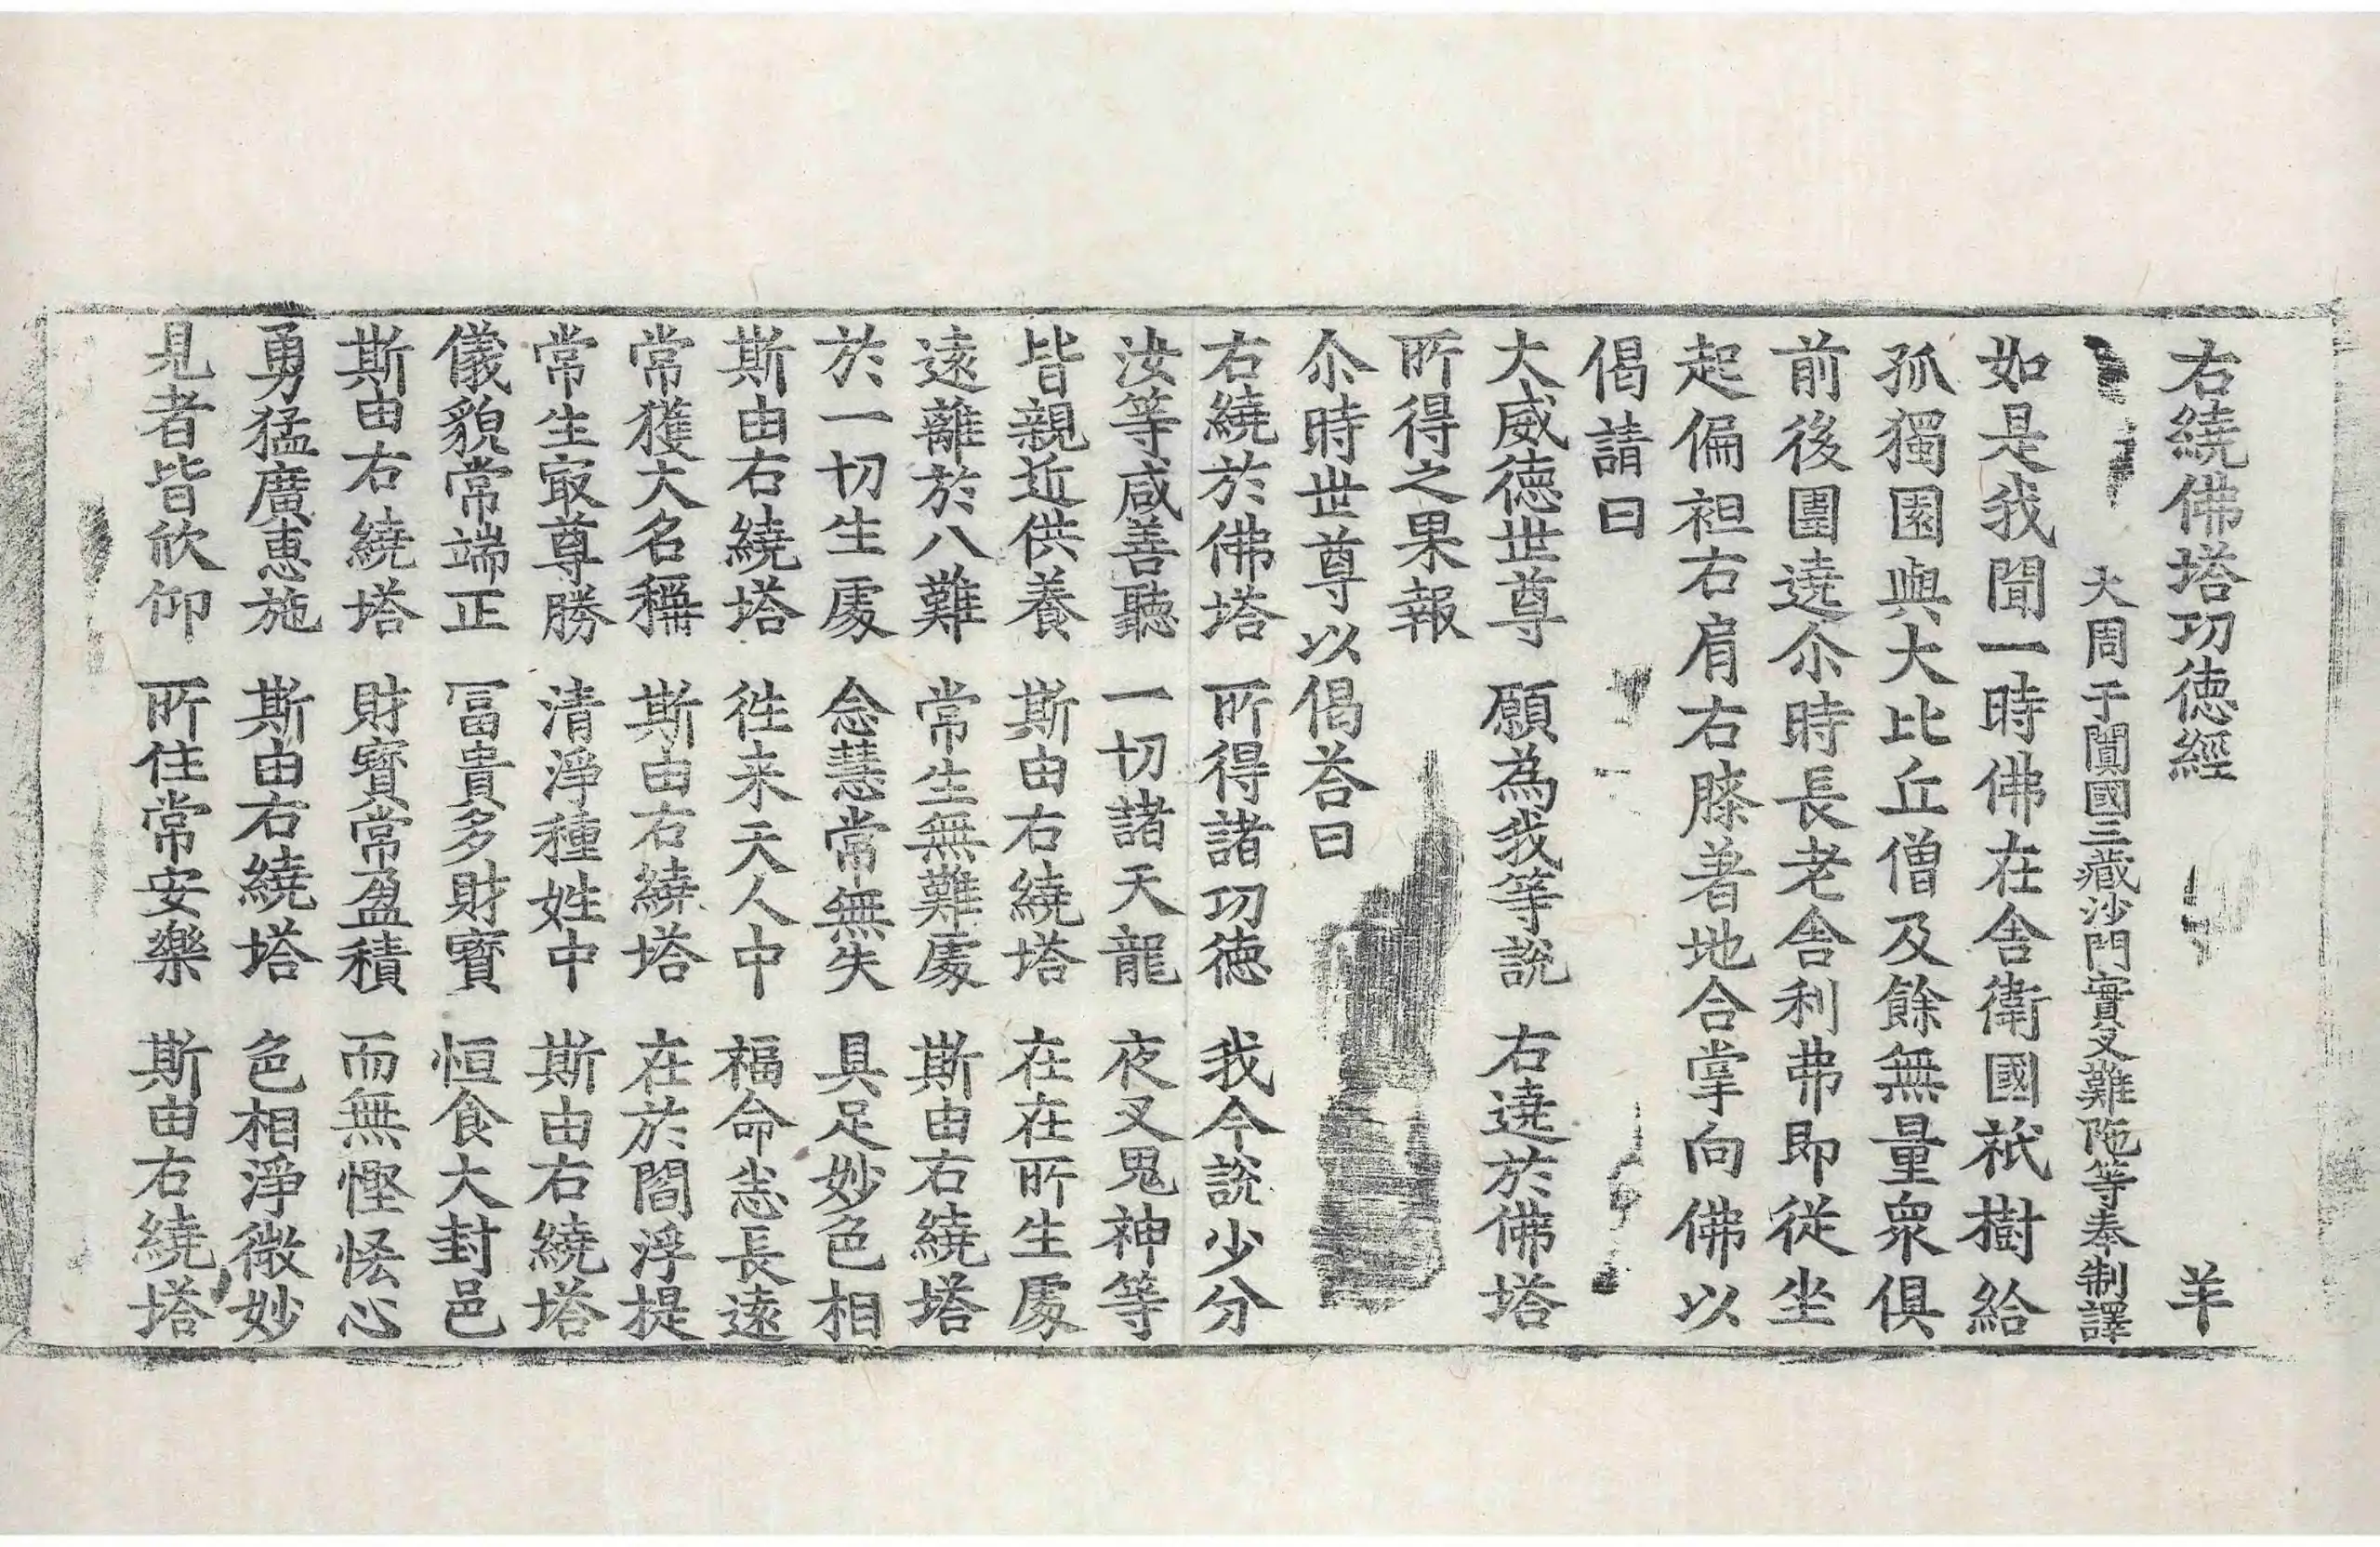 右繞佛塔功德經 羊
大周于闐國三藏沙門實叉難陁等奉制譯
如是我聞一時佛在舍衛國祇樹給
孤獨園與大比丘僧及餘無量衆俱
前後圍遶尒時長老舍利弗即從坐
起偏袒右肩右膝著地合掌向佛以
偈請曰
大威德世尊 願為我等說 右遶於佛塔
所得之果報
尒時世尊以偈荅曰
右繞於佛塔 所得諸功德 我今說少分
汝等咸善聽 一切諸天龍 夜叉鬼神等
皆親近供養 斯由右繞塔 在在所生處
遠離於八難 常生無難處 斯由右繞塔
於一切生處 念慧常無失 具足妙色相
斯由右繞塔 徃来天人中 福命悉長遠
常獲大名稱 斯由右繞塔 在於閻浮提
常生㝡尊勝 清淨種姓中 斯由右繞塔
儀貌常端正 冨貴多財寶 恒食大封邑
斯由右繞塔 財寶常盈積 而無慳悋心
勇猛廣惠施 斯由右繞塔 色相淨微妙
見者皆欣仰 所住常安樂 斯由右繞塔